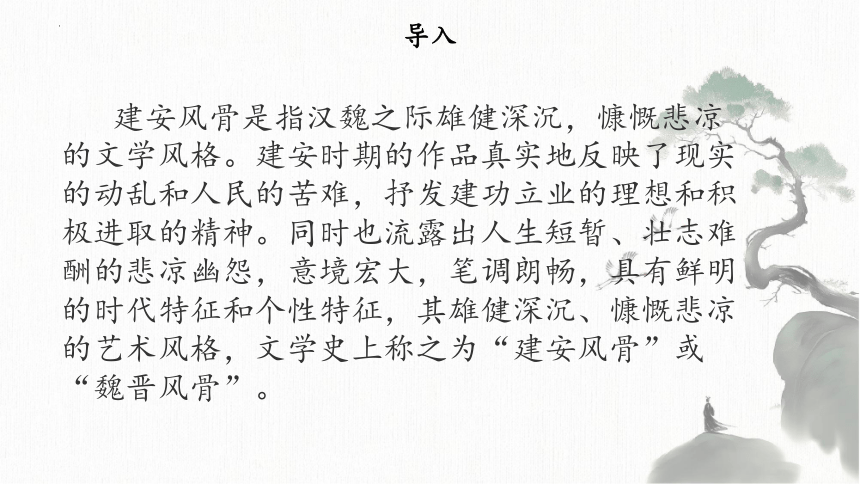 导入
建安风骨是指汉魏之际雄健深沉，慷慨悲凉
的文学风格。建安时期的作品真实地反映了现实
的动乱和人民的苦难，抒发建功立业的理想和积
极进取的精神。同时也流露出人生短暂、壮志难
酬的悲凉幽怨，意境宏大，笔调朗畅，具有鲜明
的时代特征和个性特征，其雄健深沉、慷慨悲凉
的艺术风格，文学史上称之为“建安风骨”或
“魏晋风骨”。